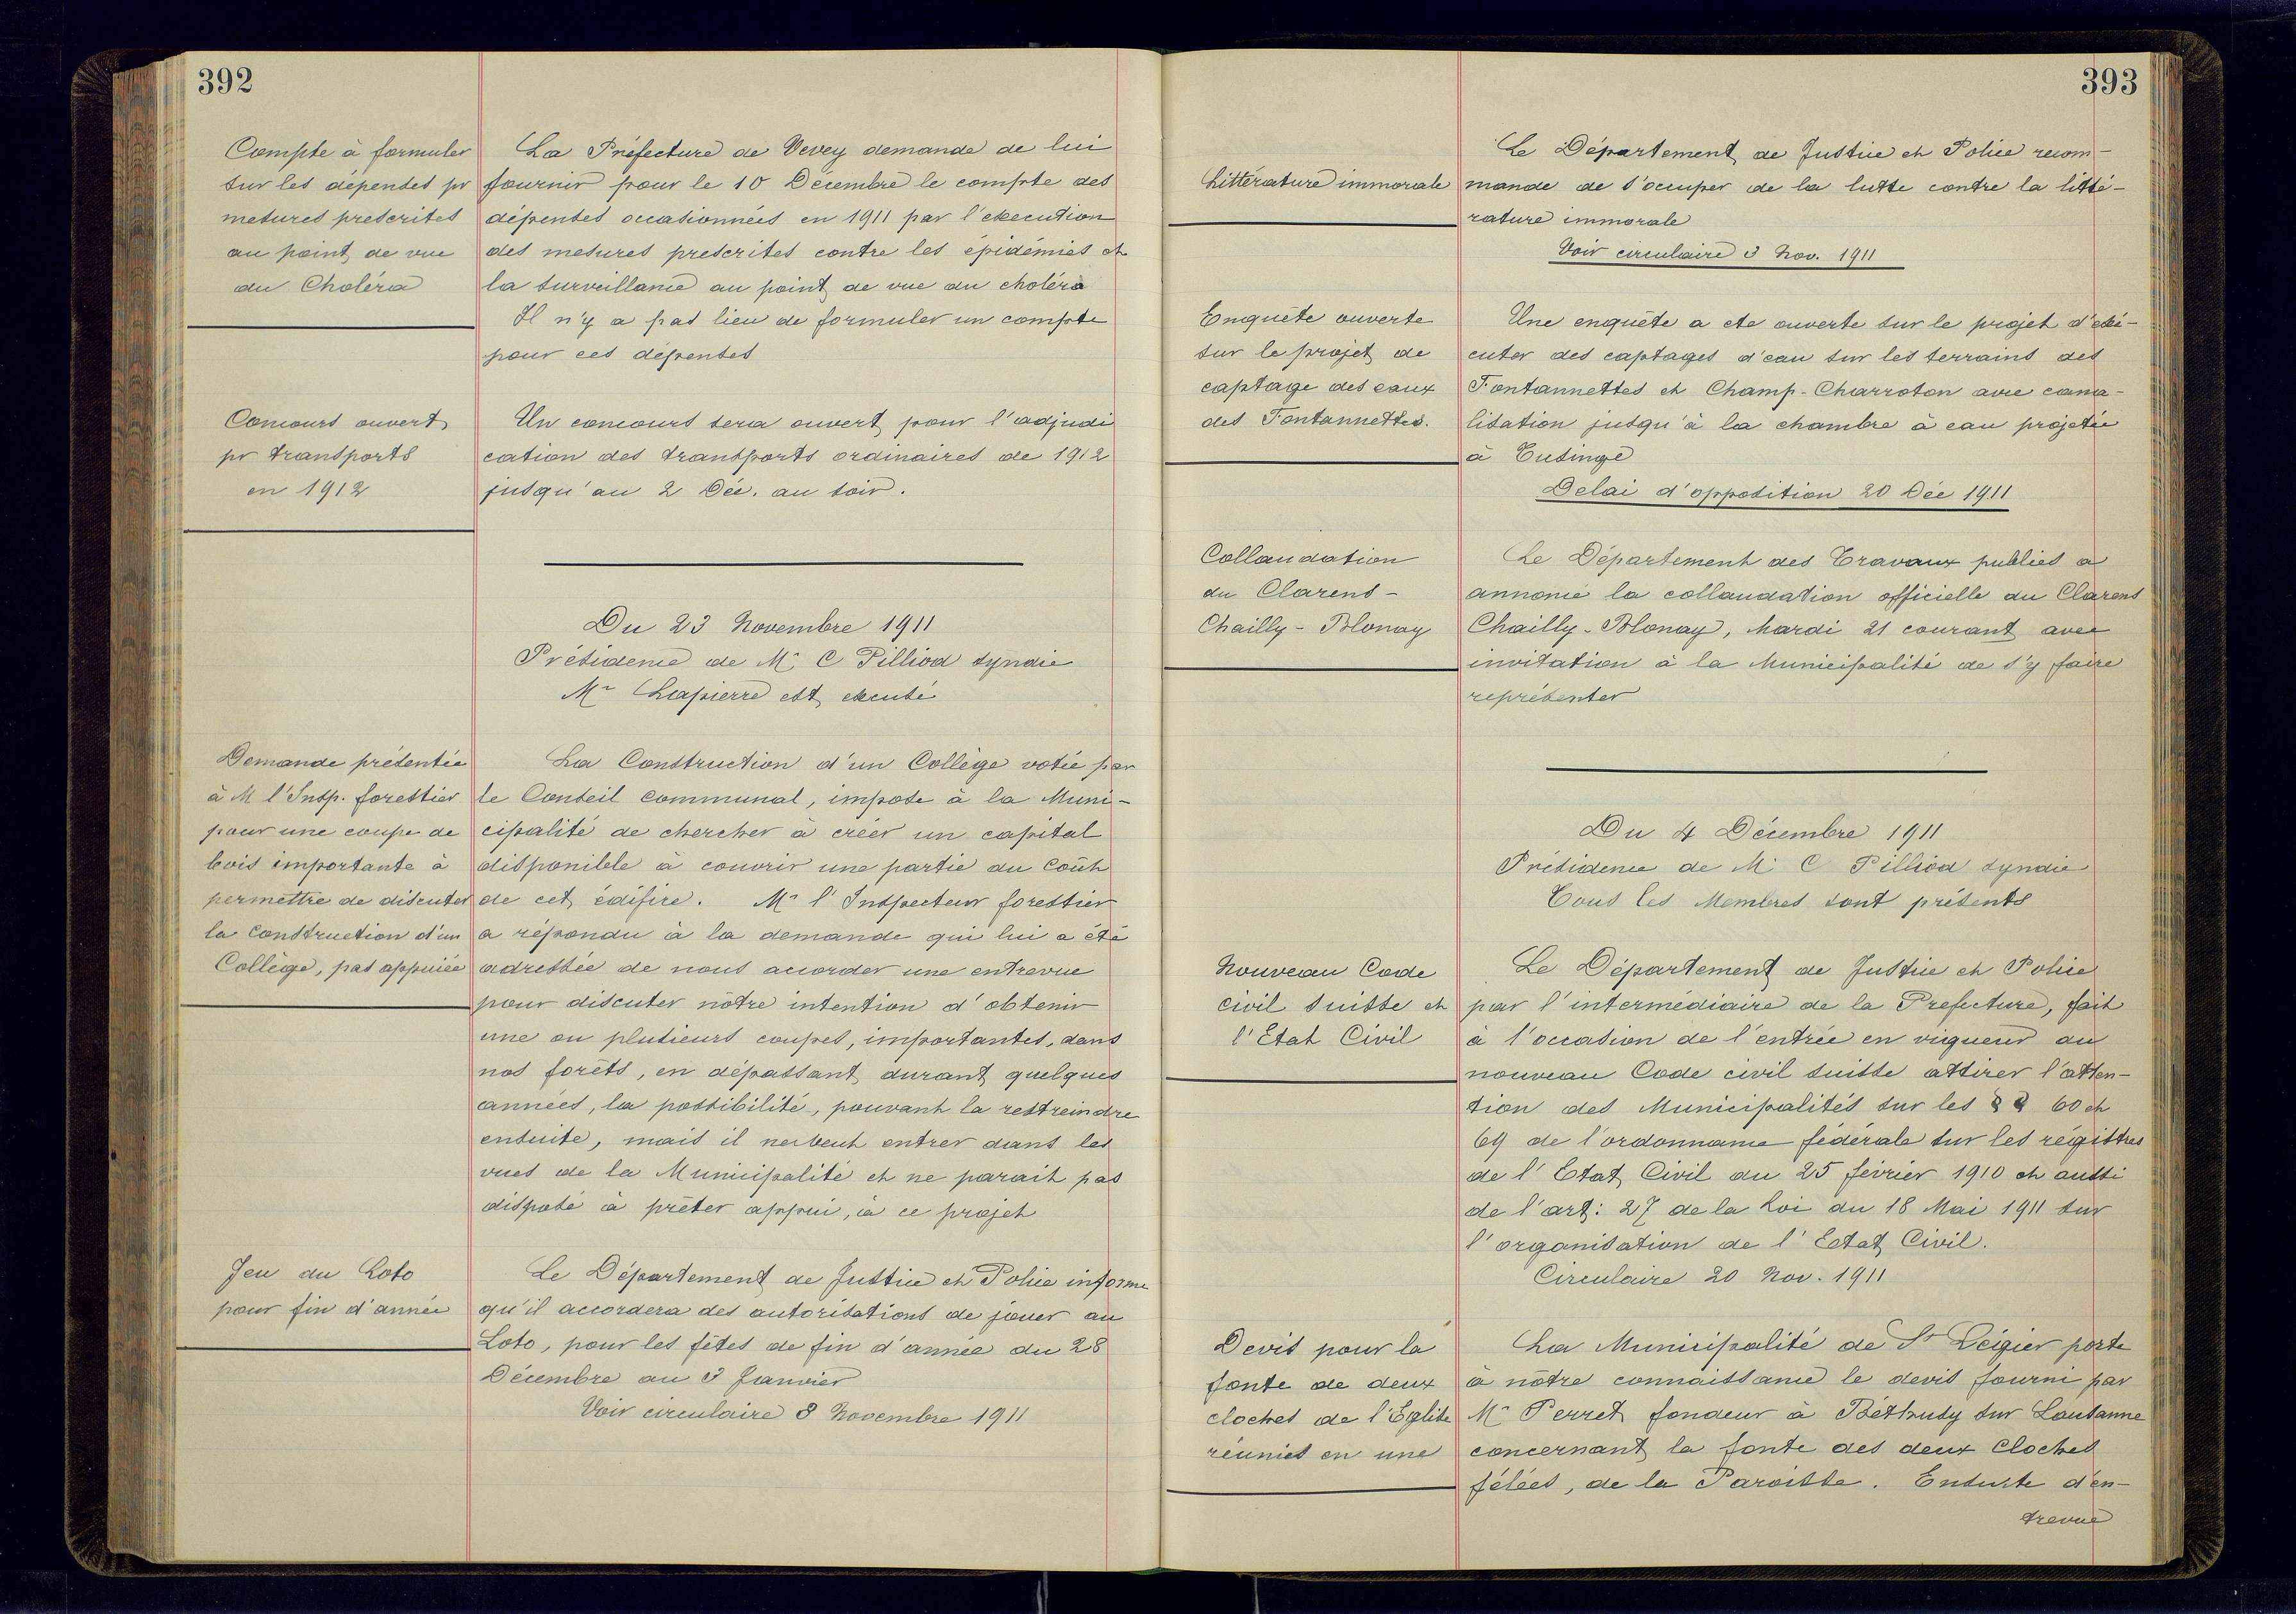 392
Compte à formuler
sur les dépenses pr
mesures prescrites
au point de vue
du Choléra
La Préfecture de Vevey demande de lui
fournir pour le 10 Décembre le compte des
dépenses occasionnées en 1911 par l'execution
des mesures prescrites contre les épidémies et
la surveillance au point de vue du choléra
Il n'y a pas lieu de formuler un compte
pour ces dépenses
Concours ouvert
pr transports
en 1912
Un concours sera ouvert pour l'adjudi
cation des transports ordinaires de 1912
jusqu'au 2 Déc. au soir.
Du 23 Novembre 1911
Présidence de Mr C Pilliod syndic
Mr Lapierre est excusé
Demande présentée
à M l'Insp. forestier
pour une coupe de
bois importante à
permettre de discuter
la Construction d'un
Collège, pas appuiée
La Construction d'un Collège votée par
le Conseil Communal, impose à la Muni-
cipalité de chercher à créer un capital
disponible à couvrir une partie du Coût
de cet édifire. Mr l'Inspecteur forestier
a répondu à la demande qui lui a été
adressée de nous accorder une entrevue
pour discuter nôtre intention d'obtenir
une ou plusieurs coupes, importantes, dans
nos forêts, en dépassant durant quelques
années, la possibilité, pouvant la restreindre
ensuite, mais il ne veut entrer dans les
vues de la Municipalité et ne parait pas
disposé à prêter appui, à ce projet
Jeu du Loto
pour fin d'année
Le Département de Justice et Police informe
qu'il accordera des autorisations de jouer au
Loto, pour les fêtes de fin d'année du 28
Décembre au 3 Janvier
Voir circulaire 8 Novembre 1911
393
Littérature immorale
Le Département de Justice et Police recom-
mande de s'occuper de la lutte contre la litté-
rature immorale
Voir circulaire 3 Nov. 1911
Enquête ouverte
sur le projet de
captage des eaux
des Fontannettes.
Une enquête a ete ouverte sur le projet d'exé-
cuter des captages d'eau sur les terrains des
Fontannettes et Champ-Charroton avec cana-
lisation jusqu'à la chambre à eau projetée
à Tusinge
Delai d'opposition 20 Déc 1911
Collaudation
du Clarens-
Chailly-Blonay
Le Département des Travaux publics a
annoncé la collaudation officielle du Clarens
Chailly-Blonay, Mardi 21 courant avec
invitation à la Municipalité de s'y faire
représenter
Du 4 Décembre 1911
Présidence de Mr C Pilliod syndic
Tous les Membres sont présents
Nouveau Code
civil suisse et
l'Etat Civil
Le Département de Justice et Police
par l'intermédiaire de la Prefecture, fait
à l'occasion de l'entrée en vigueur du
nouveau Code civil suisse attirer l'atten-
tion des Municipalités sur les §§ 60 et
69 de l'ordonnance fédérale sur les régistres
de l'Etat Civil du 25 février 1910 et aussi
de l'art: 27 de la Loi du 18 Mai 1911 sur
l'organisation de l'Eetat Civil.
Circulaire 20 Nov. 1911
Devis pour la
fonte de deux
cloches de l'Eglise
réunies en une
La Municipalité de St Légier porte
à nôtre connaissance le devis fourni par
Mr Perret fondeur à Béthusy sur Lausanne
concernant la fonte des deux Cloches
fêlées, de la Paroisse. Ensuite d'en-
trevue